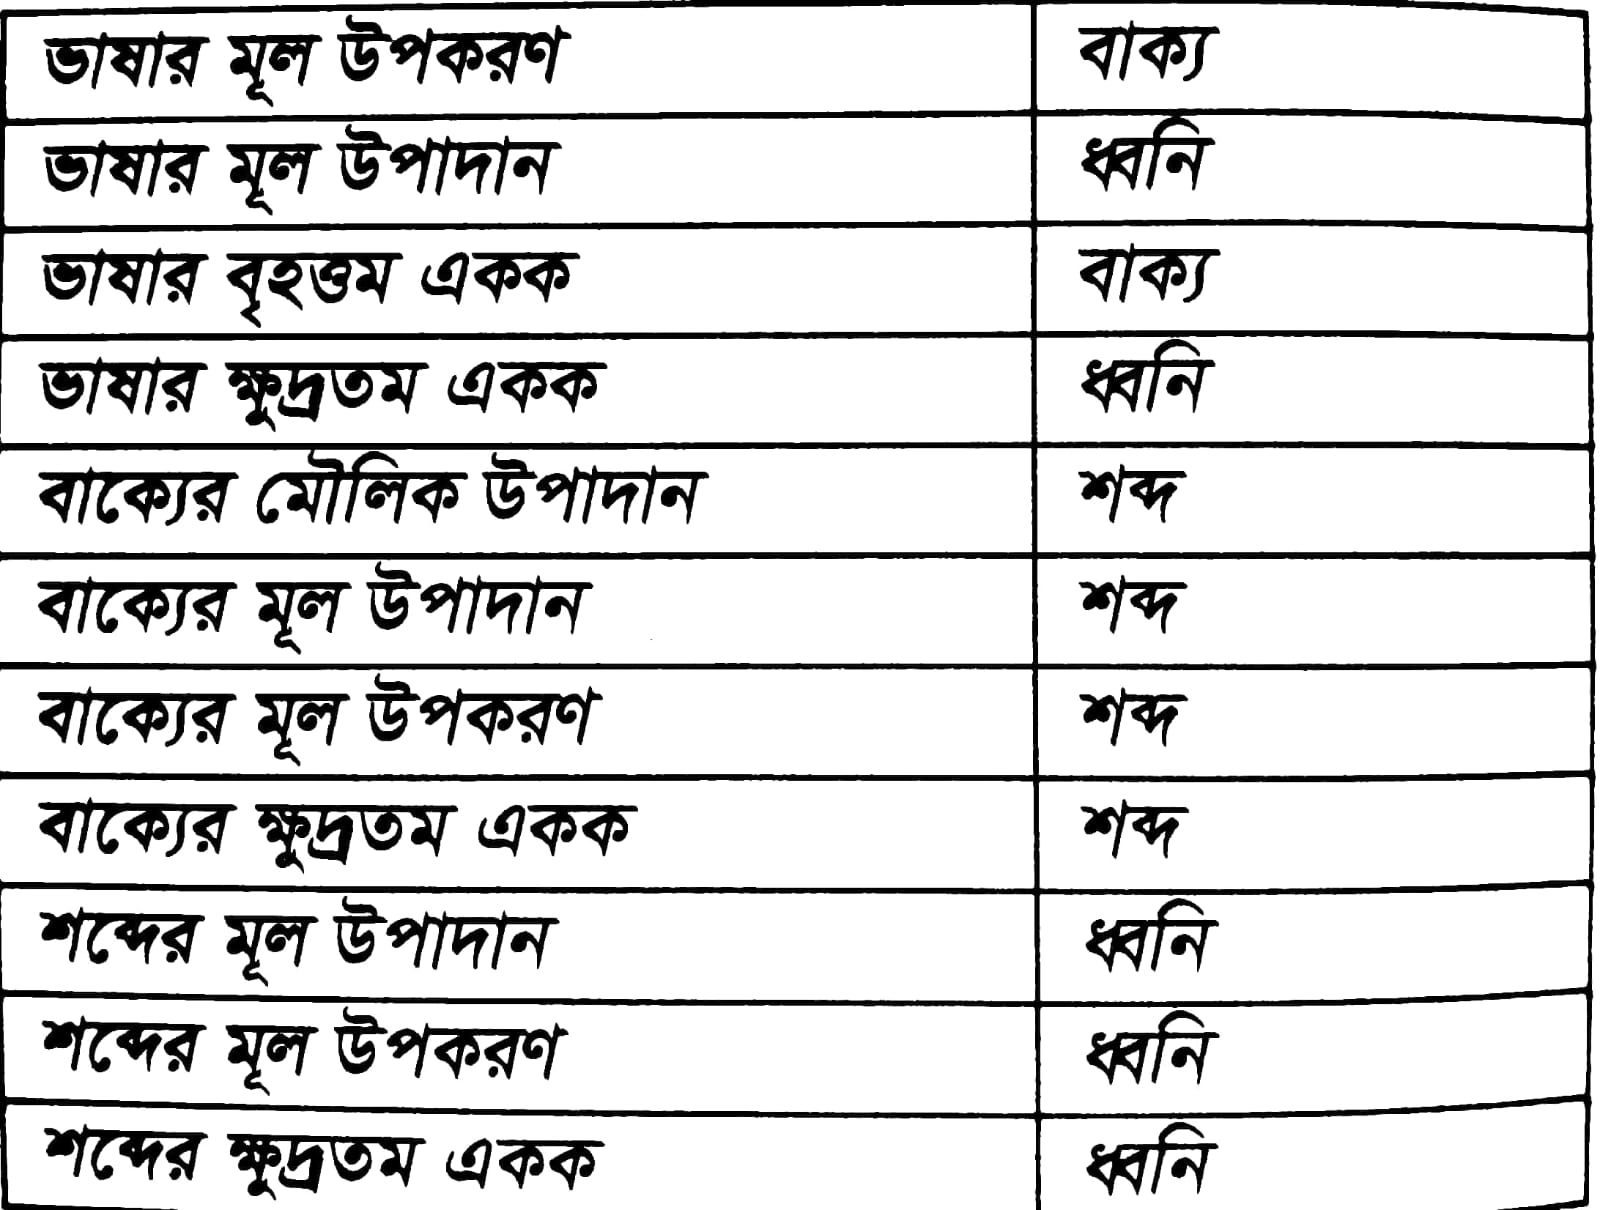 ভাষার মূল উপকরণ বাক্য
ভাষার মূল উপাদান ধ্বনি
ভাষার বৃহত্তম একক বাক্য
ভাষার ক্ষুদ্রতম একক ধ্বনি
বাক্যের মৌলিক উপাদান শব্দ
বাক্যের মূল উপাদান শব্দ
বাক্যের মূল উপকরণ শব্দ
বাক্যের ক্ষুদ্রতম একক শব্দ
শব্দের মূল উপাদান ধ্বনি
শব্দের মূল উপকরণ ধ্বনি
শব্দের ক্ষুদ্রতম একক ধ্বনি